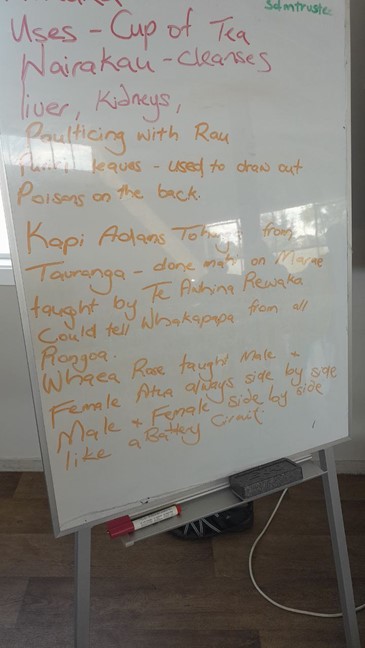 Sdmtrustee
Uses - Cup of Tea
Wairakau - cleanses
liver, Kidneys,
Poulticing with Rau
leaves - used to draw out
Poisons on the back.
Kapi Adams from
Tauranga - done on Marae
taught by Te Rewaka
Could tell Whakapapa from all
Rongoa.
Whaea Rose taught Male +
Female Atua always side by side
Male + Female side by side
like a Battery Circuit.